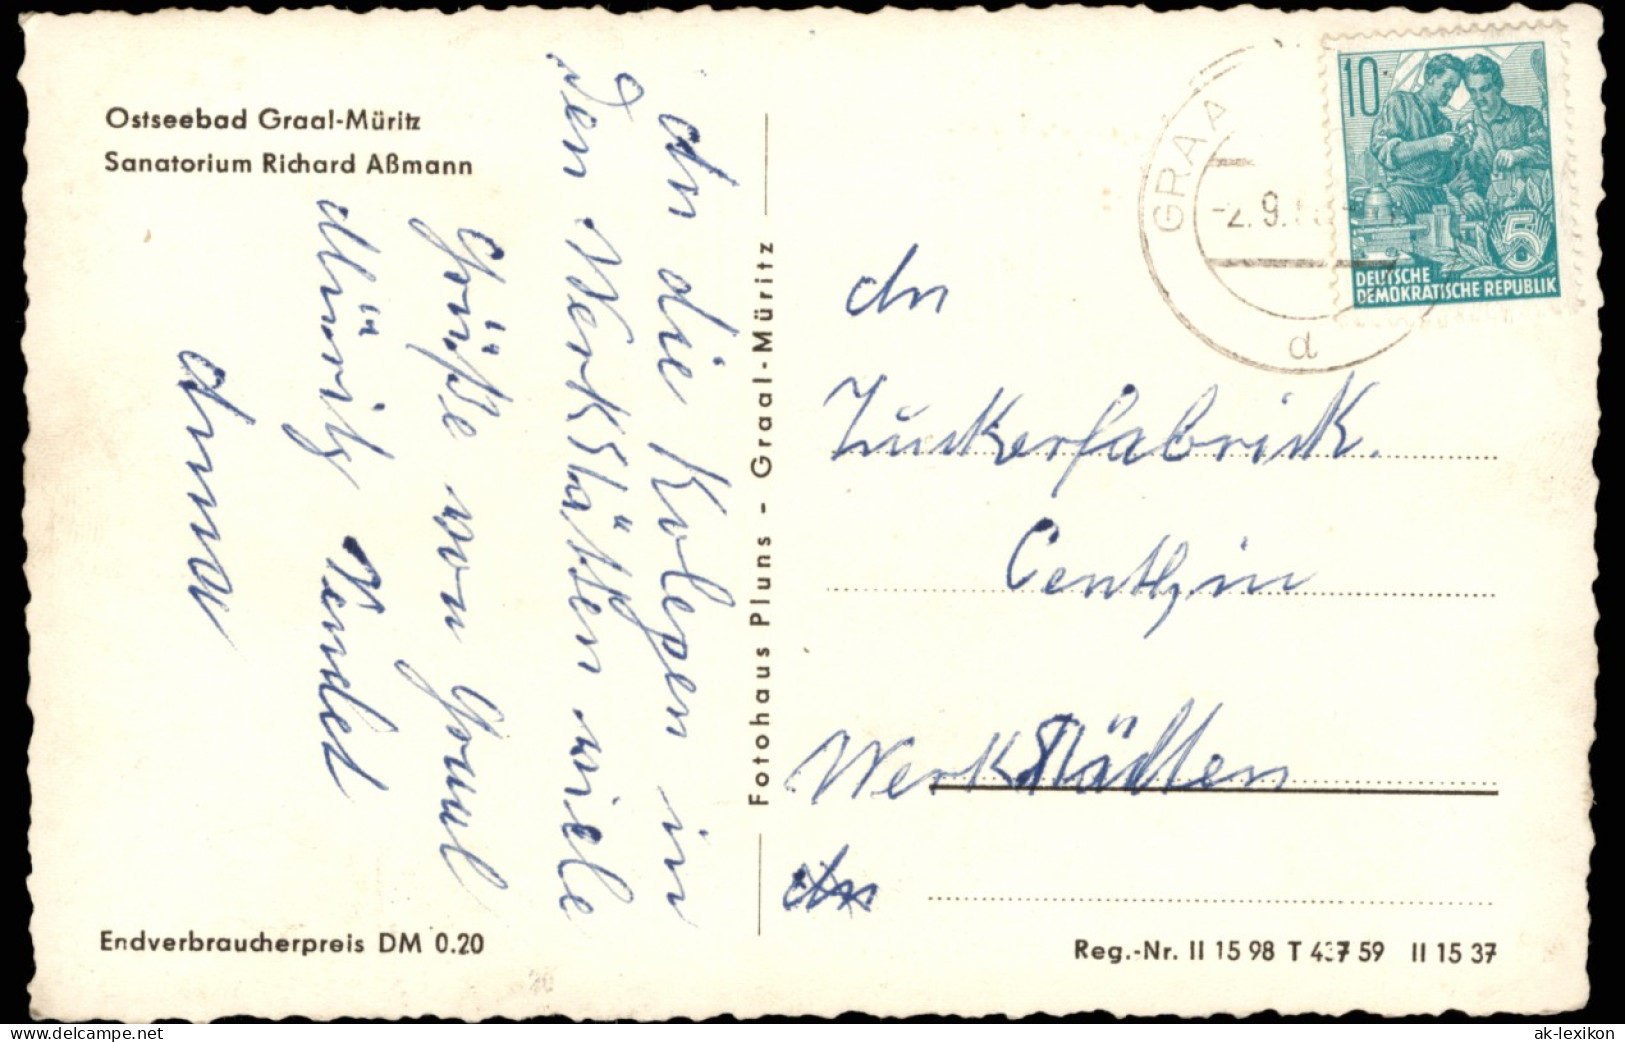 Ostseebad Graal-Müritz
Sanatorium Richard Aßmann
An die Kolegen in
den Werkstätten viele
Grüße von Graal
Müritz sendet
Anna
Endverbraucherpreis DM 0.20
Fotohaus Pluns - Graal-Müritz
GRAA
-2.9.
d
10
5
DEUTSCHE
DEMOKRATISCHE REPUBLIK
An
Zuckerfabrik.
Genthin
Werkstädten
An
Reg.-Nr. II 15 98 T 437 59 II 15 37
www.delcampe.net
ak-lexikon